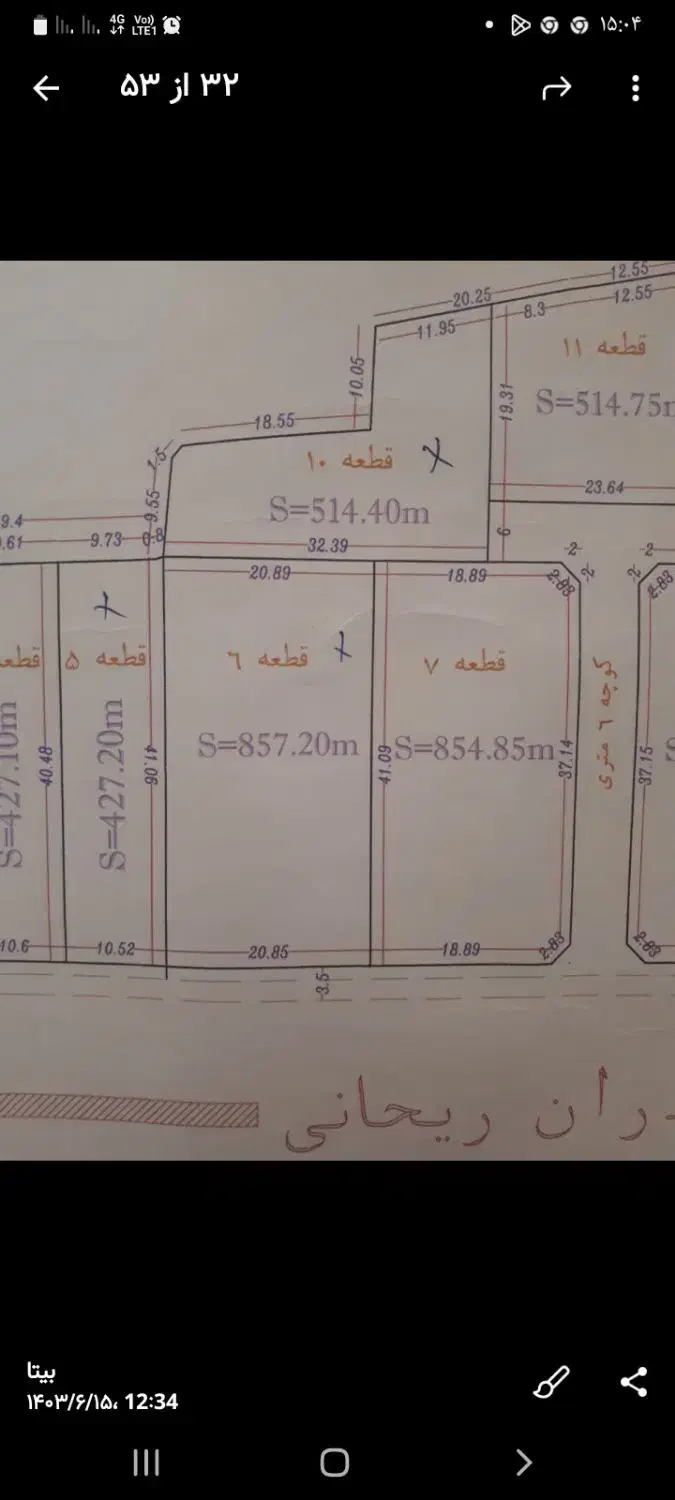 ۱۵:۰۴
4G
Vo))
LTE1
۳۲ از ۵۳
12.55
20.25
12.55
8.3
11.95
قطعه ۱۱
10.05
19.31
S=514.75m
18.55
1.5
قطعه ۱۰
23.64
9.55
S=514.40m
9.4
6
.61
9.73
0.8
32.39
2
2
20.89
18.89
2.83
2
2
2.83
قطعه ۵
قطعه ٦
قطعه ۷
کوچه ٦ متری
S=427.10m
40.48
S=427.20m
41.06
S=857.20m
41.09
S=854.85m
37.14
37.15
10.6
10.52
20.85
18.89
2.83
2.83
3.5
ران ریحانی
بیتا
۱۴۰۳/۶/۱۵، 12:34